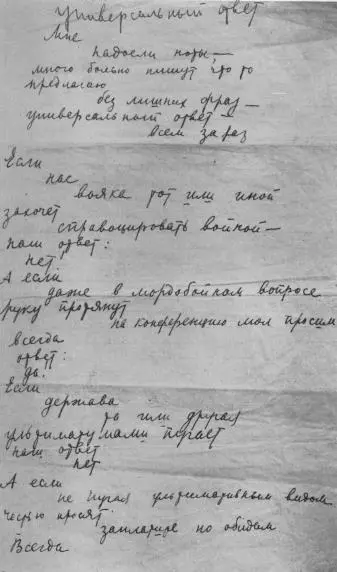 универсальный ответ
Мне
надоели ноты —
много больно пишут что то
предлагаю
без лишних фраз —
универсальный ответ —
всем за раз
Если
нас
вояка тот или иной
захочет
спровоцировать войной —
наш ответ:
нет!
А если
даже в мордобойном вопросе
руку протянут
на конференцию мол просим
всегда
ответ:
да.
Если
держава
та или другая
ультиматумами пугает
наш ответ
нет
А если
не пугая ультимативным видом
честью просят
заплатите по обидам
Всегда